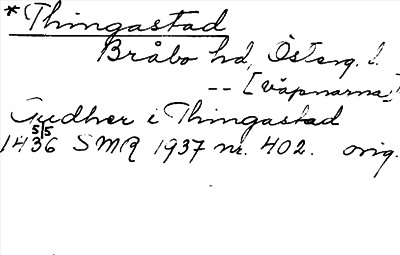 *Thingastad
Bråbo hd, Österg. l.
-- [Väpnarna]
Gudher i Thingastad
5/5
1436 SMR 1937 nr. 402. orig.